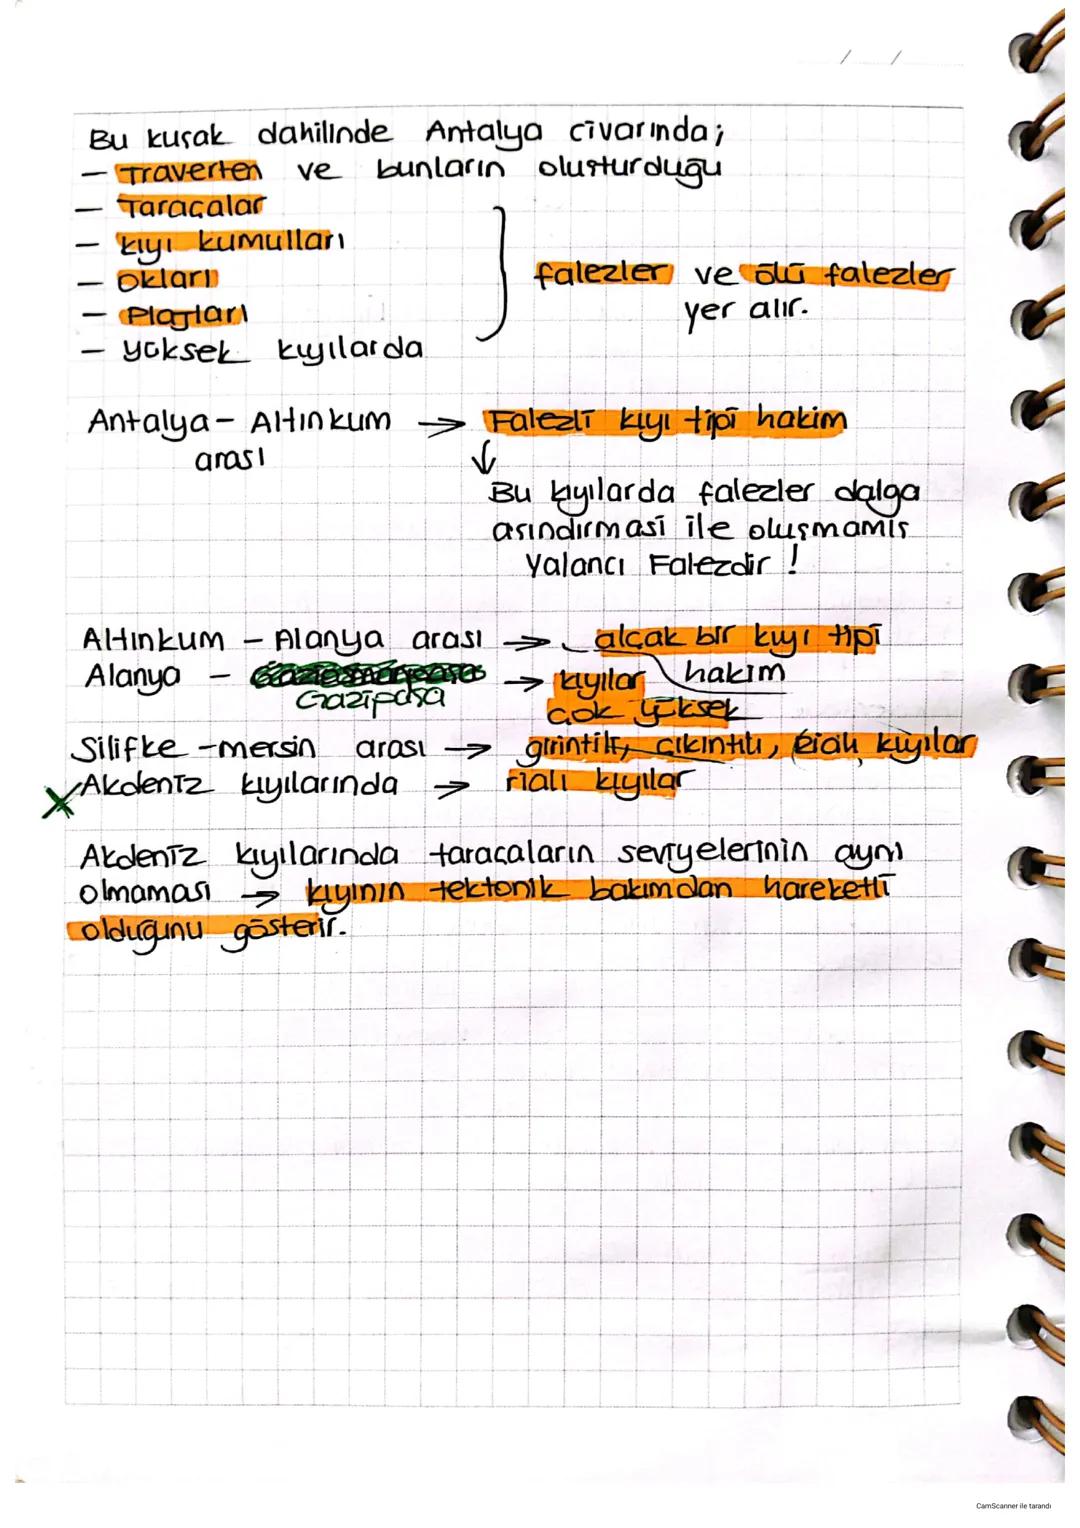 Bu kuşak dahilinde Antalya civarında;
- Traverten ve bunların oluşturduğu
- Taraçalar
- kıyı kumulları
- Okları
- Plajları
- yüksek kıyılarda
falezler ve ölü falezler
yer alır.
Antalya - Altınkum → Falezli kıyı tipi hakim
arası ↓
Bu kıyılarda falezler dalga
aşındırması ile oluşmamış
Yalancı Falezdir !
Altınkum - Alanya arası → alçak bir kıyı tipi
hakim
Alanya - Gazipaşa → kıyılar
çok yüksek
Silifke - mersin arası → girintili, çıkıntılı, kıyılar
X Akdeniz kıyılarında → rialı kıyılar
Akdeniz kıyılarında taraçaların seviyelerinin aynı
olmaması → kıyının tektonik bakımdan hareketli
olduğunu gösterir.
CamScanner ile tarandı